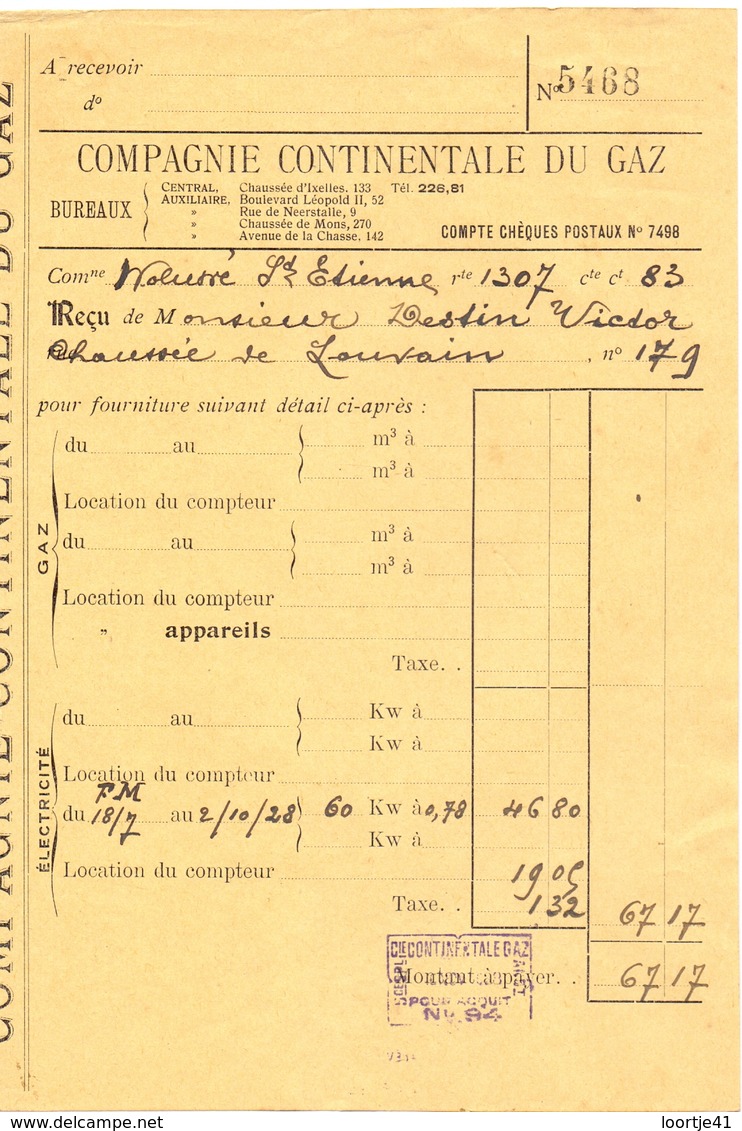 A recevoir
do
No 5468
COMPAGNIE CONTINENTALE DU GAZ
BUREAUX
CENTRAL, Chaussée d'Ixelles. 133 Tél. 226,81
AUXILIAIRE, Boulevard Léopold II, 52
» Rue de Neerstalle, 9
» Chaussée de Mons, 270
» Avenue de la Chasse. 142
COMPTE CHÈQUES POSTAUX No 7498
Comne Woluwé St Etienne rte 1307 cte ct 83
Reçu de Monsieur Destin Victor
Chaussée de Louvain, no 179
pour fourniture suivant détail ci-après :
GAZ
du au m3 à
m3 à
Location du compteur
du au m3 à
m3 à
Location du compteur
» appareils
Taxe. .
ÉLECTRICITÉ
du au Kw à
Kw à
Location du compteur
FM
du 18/7 au 2/10/28 60 Kw à 0,78 46 80
Kw à
Location du compteur 19 05
Taxe. . 1 32 67 17
Montant à payer. . 67 17
CIE CONTINENTALE GAZ
POUR ACQUIT
No. 94
COMPAGNIE CONTINENTALE DU GAZ
loortje41